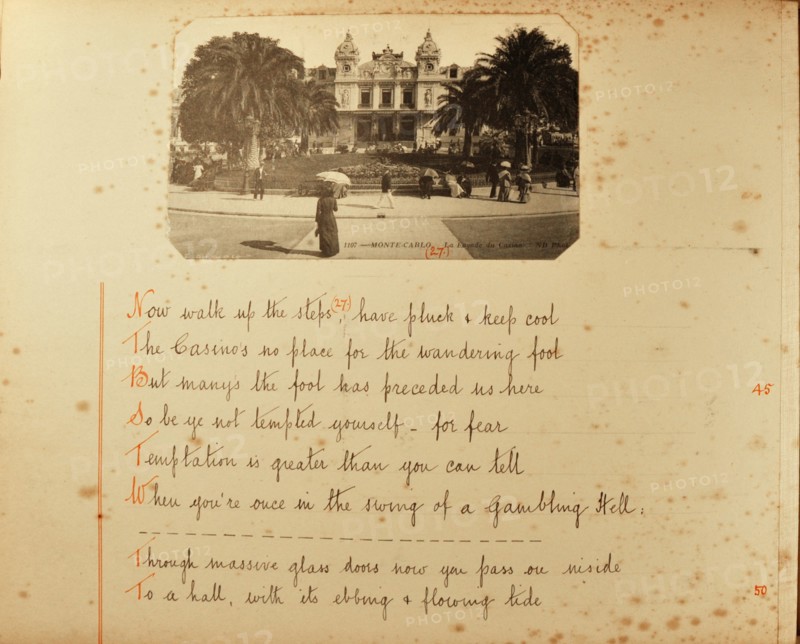 1107 — MONTE-CARLO. La Façade du Casino ND Phot
(27.)
Now walk up the steps(27.), have pluck & keep cool
The Casino's no place for the wandering fool
But many's the fool has preceded us here
45
So be ye not tempted yourself – for fear
Temptation is greater than you can tell
When you're once in the swing of a Gambling Hell:
Through massive glass doors now you pass on inside
To a hall, with its ebbing & flowing tide
50
PHOTO12